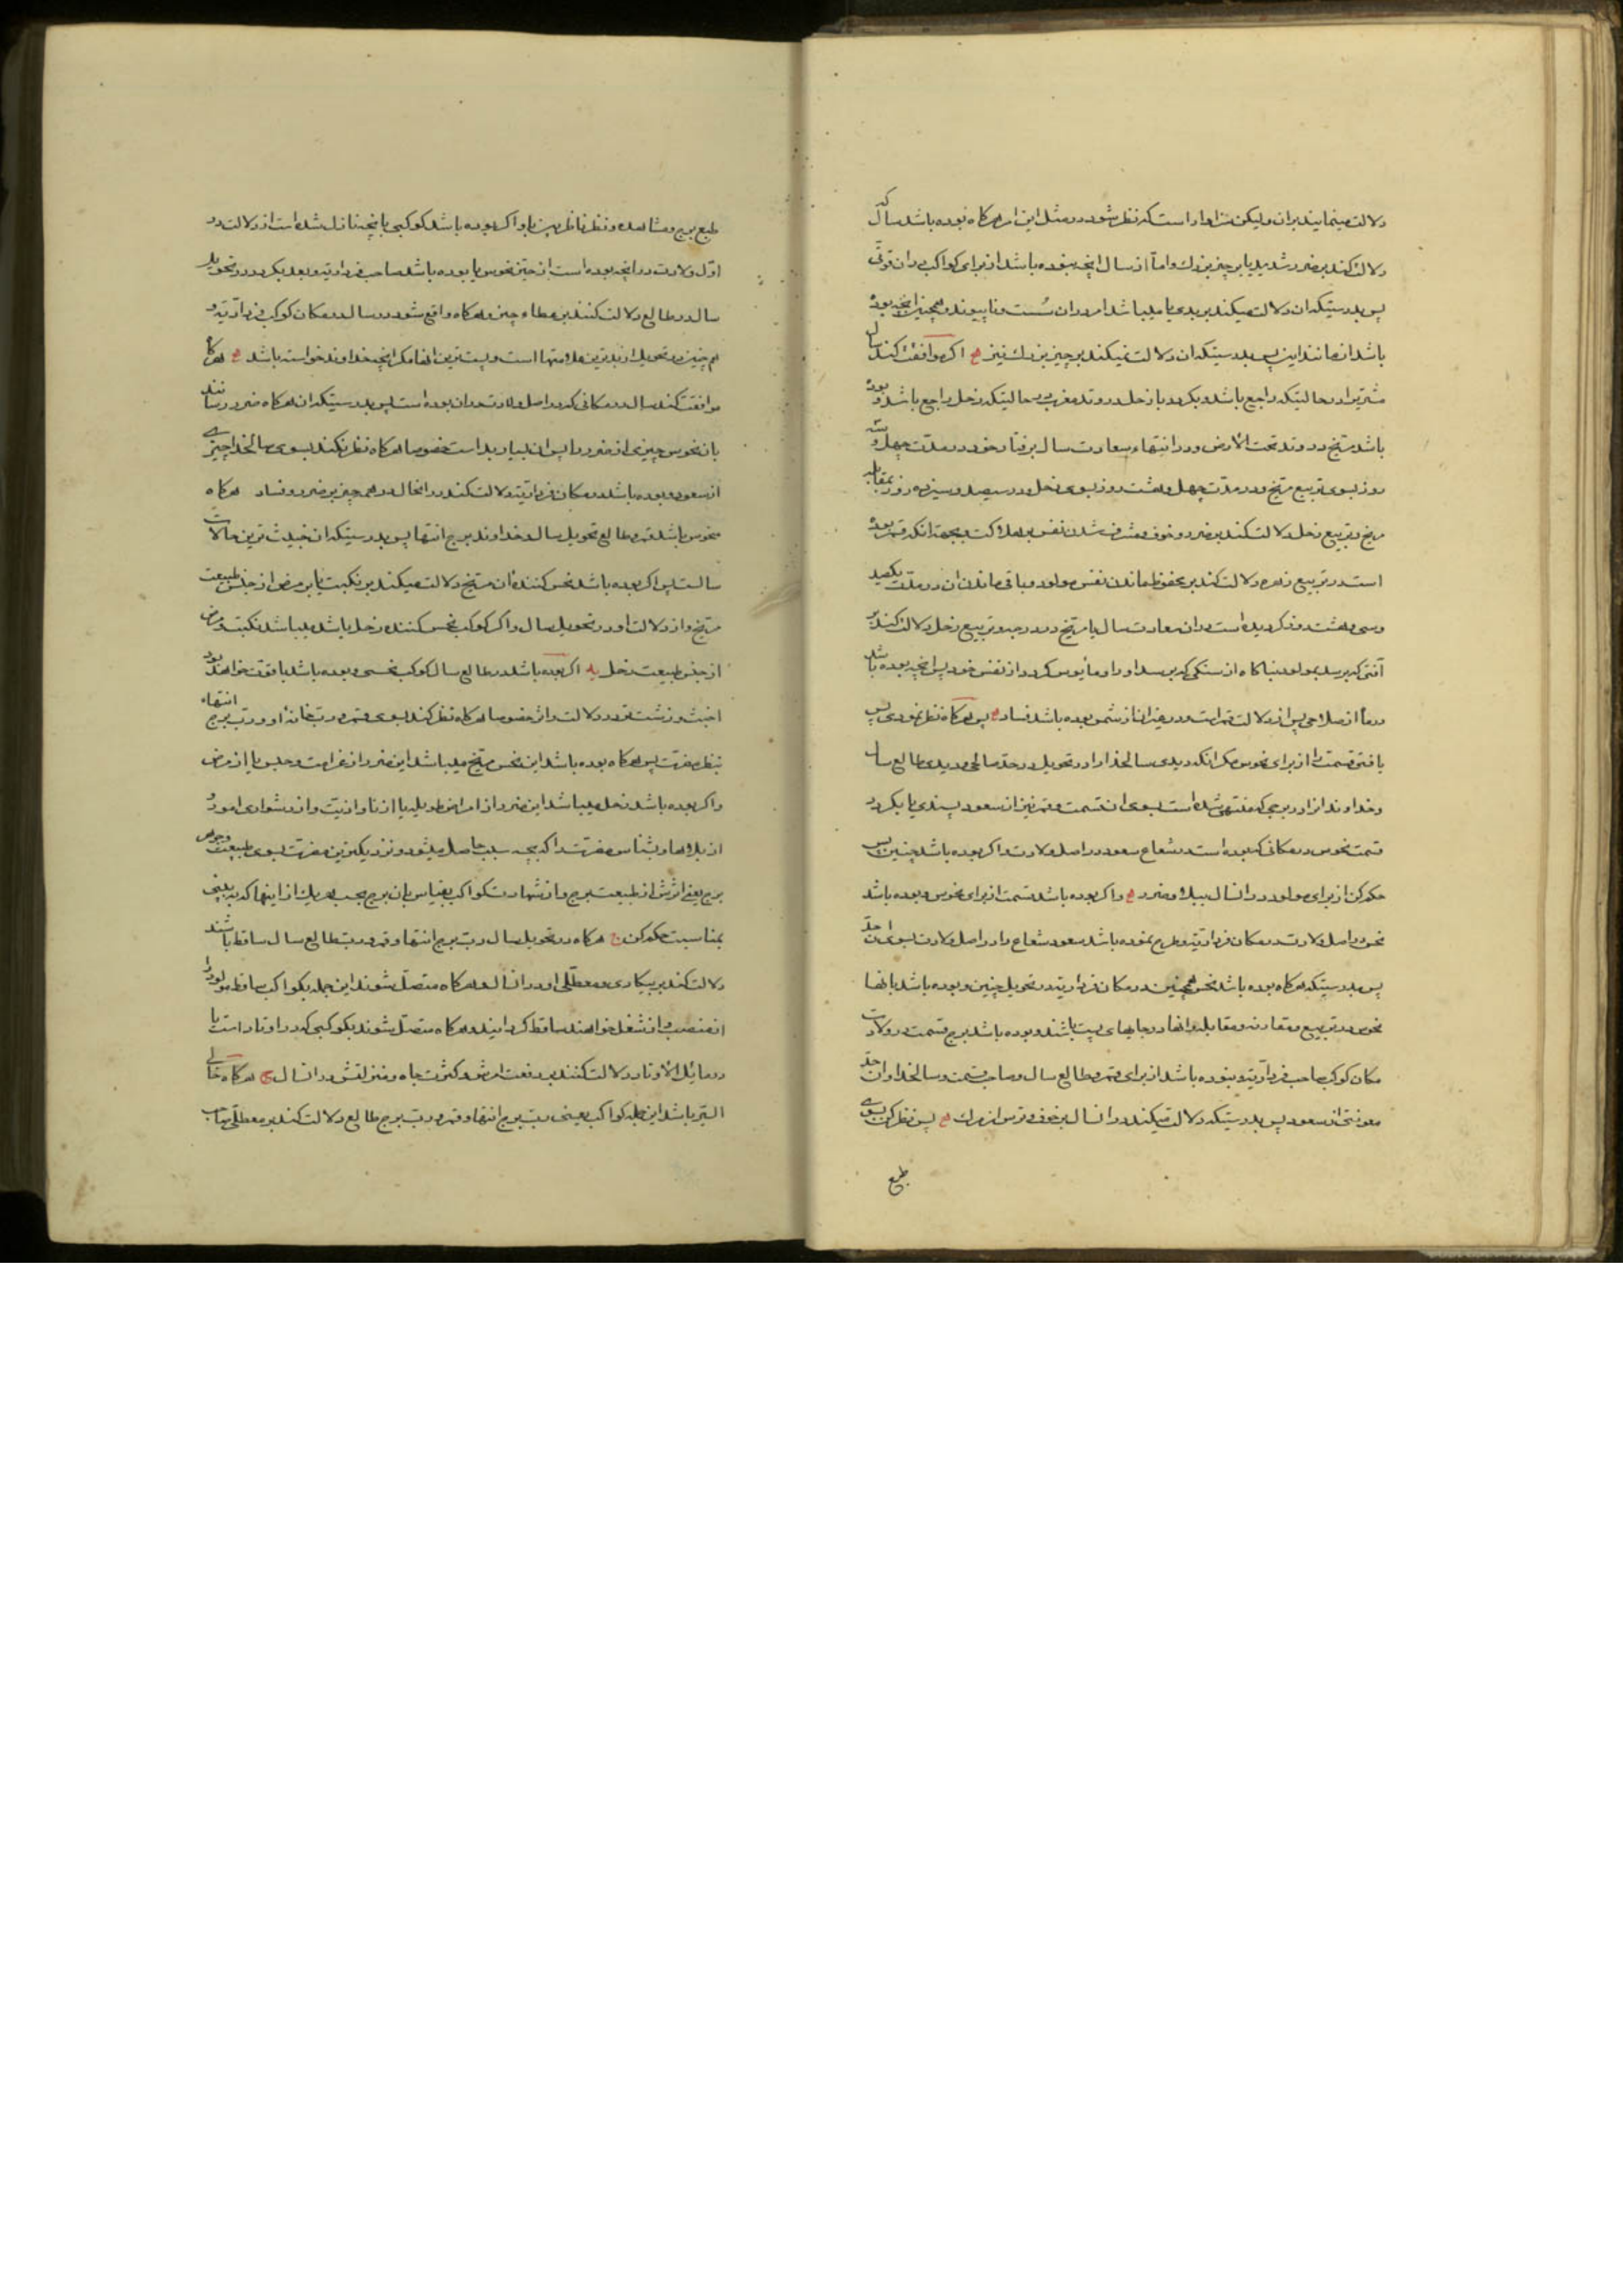 دلالت مینمایند بران ولیکن سزاوار است که نظر شود در مثل این امر هرگاه نبوده باشد سال که
دلالت کند بر ضرر شدید یا بر چیز بزرك و اما از سال انچه بنوده باشد از برای کواکب دران قوتی
پس بدرستیکه ان دلالت میکند بر بدی یا میباشد امر دران سست و ناپیوند و همچنین انچه بوده
باشد ان مانند این پس بدرستیکه ان دلالت نمیکند بر چیز بزرك نیز اگر موافقت کند سال
مشتریرا در حالیتکه راجع باشد و بگردد باز حل در وتد مغرب در حالیتکه زحل راجع باشد و بوده
باشد مریخ در وتد تحت الارض و در انتهاء سعادت سال برفتار خود در مدت چهل و شش
روز بسوی تربیع مریخ و در مدت چهل و هشت روز بسوی زحل و در سیصد و سیزده روز بمقابله
مریخ و تربیع زحل دلالت کند بر ضرر و خوف و مشرف شدن نفس بر هلاکت و بجهة انکه قمر بوده
است در تربیع زهره دلالت کند بر محفوظ ماندن نفس مولود و باقی ماندن ان در مدت یکصد
وسی و هشت روز کردیده است دران سعادت سال با مریخ در درجه و تربیع زحل دلالت کند بر
آفتی که برسد بمولود ناگاه از سنگی که برسد او را و مأیوس گردد از نفس خود پس انچه بوده باشد
در ما از صلاحی پس از دلالت قمر است و در غیر انا از شمس بوده باشد فساد پس هرگاه نظر نمودی پس
یافتی قسمت را از برای نحوس مگر انکه دیدی سالخداه را در تحویل در حد صالحی و دیدی طالع سال
وخداوند انرا در برجی که منتهی شده است بسوی ان قسمت و قمر نیز از سعود پسندی یا بگردد
قسمت نحوس در مکانی که بوده است در شعاع سعود در اصل ولادت و اگر بوده باشد چنین پس
حکم کن از برای مولود در انسال ببلا و ضرر و اگر بوده باشد قسمت از برای نحوس و بوده باشد
نحس در اصل ولادت در مکان فرداریته و طرح نموده باشد سعود شعاع را در اصل ولادت بسوی ان حد
پس بدرستیکه هرگاه بوده باشد نحس همچنین در مکان فرداریته در تحویل چنین و بوده باشد بانها
نحوس در تربیع و مقارنه و مقابله و انها در جایهای پست باشند و بوده باشد برج قسمت در ولادت
مکان کوکب صاحب فرداریته و بنوده باشد از برای قمر و طالع سال و صاحب قسمت و سالخداه و ان حد
معونتی از سعود پس بدرستیکه دلالت میکند در انسال بر خوف و ترس از مرك پس نظر کن بسوی
طبع
طبع برج و مشاهده و نظر ناظرین باو اگر بوده باشد کوکبی بانچه نازل شده است از دلالت در
اول ولادت در انچه بوده است از حیز نحوس یا بوده باشد صاحب فرداریته و بعد بگردد در تحویل
سال در طالع دلالت کنند بر عطاء چیز و هرگاه واقع شود در سال در مکان کوکب فرداریته و
هم چنین در تحویل از بدترین علامتها است و پست ترین انها مگر انچه خداوند خواسته باشد هرگاه
موافقت کند سال در مکانی که در اصل ولادت در ان بوده است پس بدرستیکه ان هرگاه ضرر رسانند
بان نحوس چیزی از ضرر را پس ان بسیار بد است خصوصا هرگاه نظر نکند بسوی سالخداه چیزی
از سعود و بوده باشد در مکان فرداریته دلالت کند در انحال در هر چیز بر ضرر و فساد هرگاه
منحوس باشد قمر و طالع تحویل سال و خداوند برج انتها پس بدرستیکه ان خبیث ترین حالات
سالست پس اگر بوده باشد نحس کننده ان مریخ دلالت میکند بر نکبت یا بر مرض از جنس طبیعت
مریخ و از دلالت او در تحویل سال و اگر کوکب نحس کننده زحل باشد میباشد نکبت و مرض
از جنس طبیعت زحل اگر بوده باشد در طالع سال کوکب نحسی و بوده باشد با قوت خواهد بود
اخبث و زشت تر در دلالت و اثر خصوصا هرگاه نظر کند بسوی قمر و رب خانه او و رب برج انتهاء
بنظر مضرت پس هرگاه بوده باشد این نحس مریخ میباشد این ضرر از غرامت و حبس یا از مرض
و اگر بوده باشد زحل میباشد این ضرر از امراض طویله یا از ناو اذیت و از دشواری امور و
از بلاها و بشناس مضرت را که بچه سبب حاصل میشود و نزدیکترین مضرت بسوی طبیعت و جوهر
برج یعنی اثرش از طبیعت برج و از شهادت کواکب بقیاس بان برج بحسب هریك از اینها که ببینی
بمناسبت حکم کن هرگاه در تحویل سال رب برج انتها و قمر و رب طالع سال ساقط باشند
دلالت کند بر بیکاری و معطلی او در انسال و هرگاه متصل شوند این جمله بکواکب ساقط مولود را
از منصب و از شغل خواهند ساقط گردانید و هرگاه متصل شوند بکوکبی که در اوتاد است یا
در مائل الاوتاد دلالت کنند بر رفعت امرش و کثرت جاه و منزلتش در انسال هرگاه خالی
السیر باشد این جمله کواکب یعنی رب برج انتها و قمر و رب برج طالع دلالت کند بر معطلی صاحب